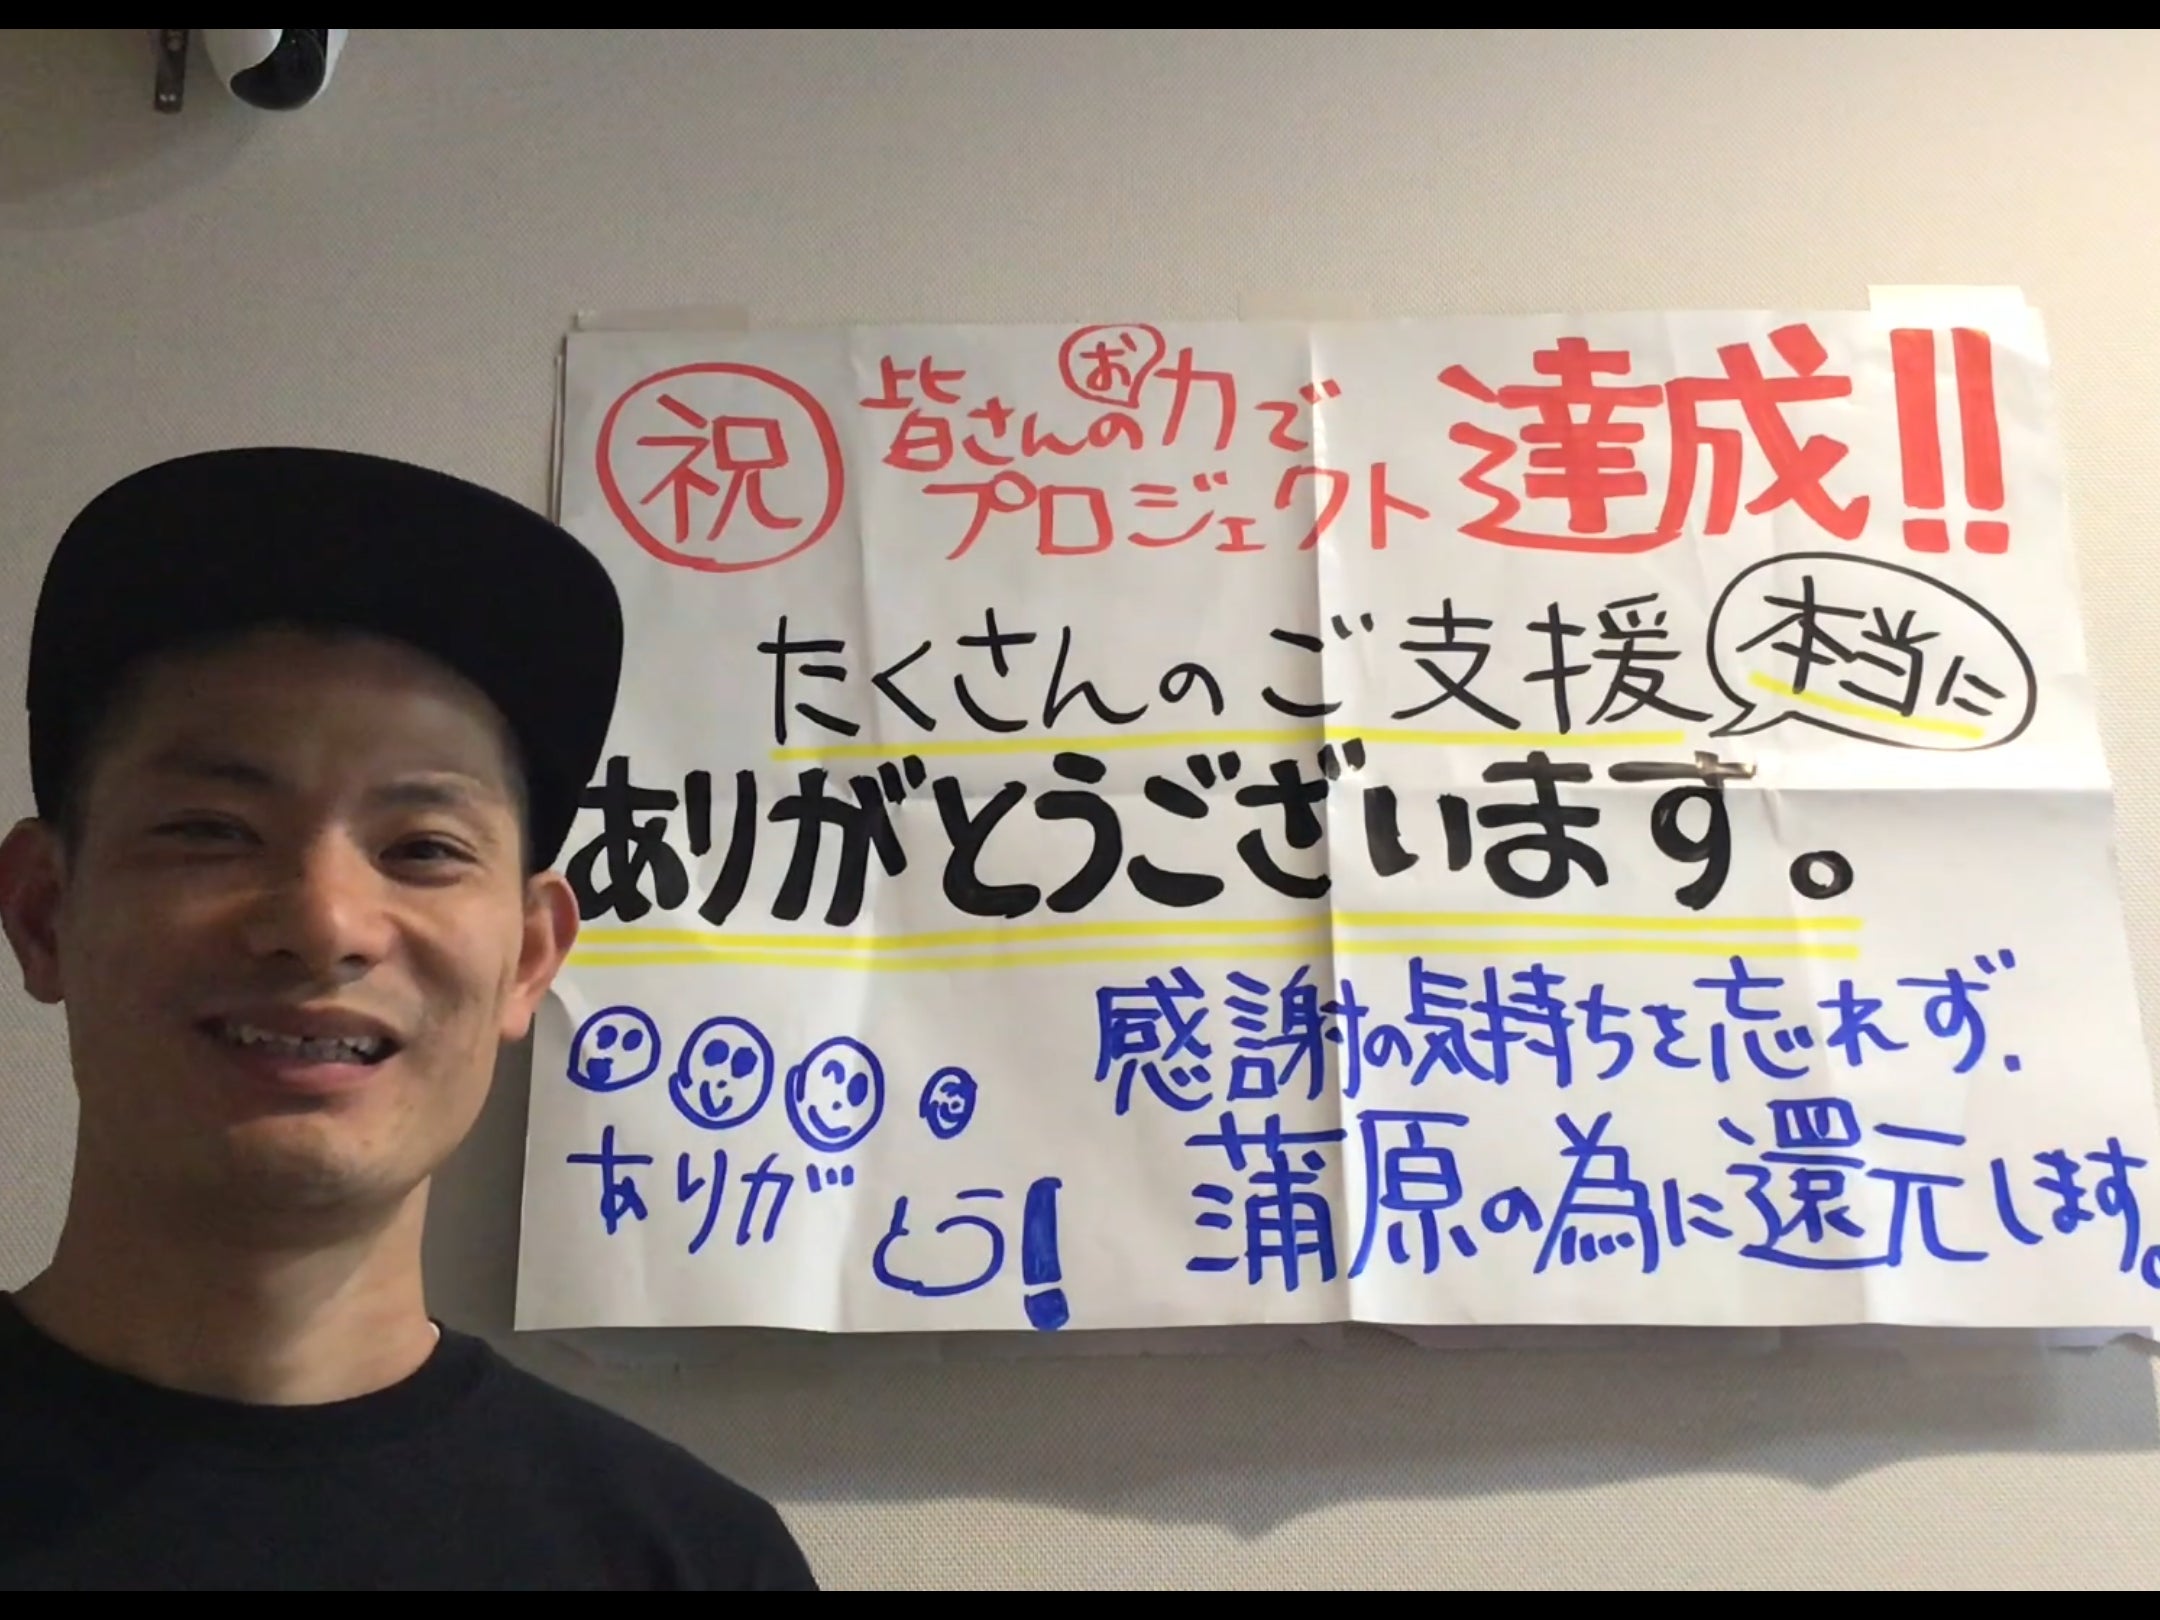 祝 皆さんのお力で
プロジェクト 達成!!
たくさんのご支援 本当に
ありがとうございます。
感謝の気持ちを忘れず.
蒲原の為に還元します。
ありがとう!